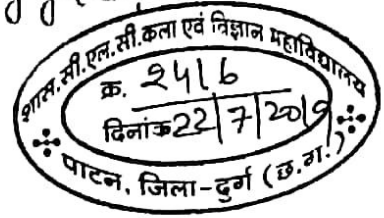 शास. सी.एल.सी.कला एवं विज्ञान महाविद्यालय
क्र. 2516
दिनांक 22/7/2019
पाटन, जिला-दुर्ग (छ.ग.)